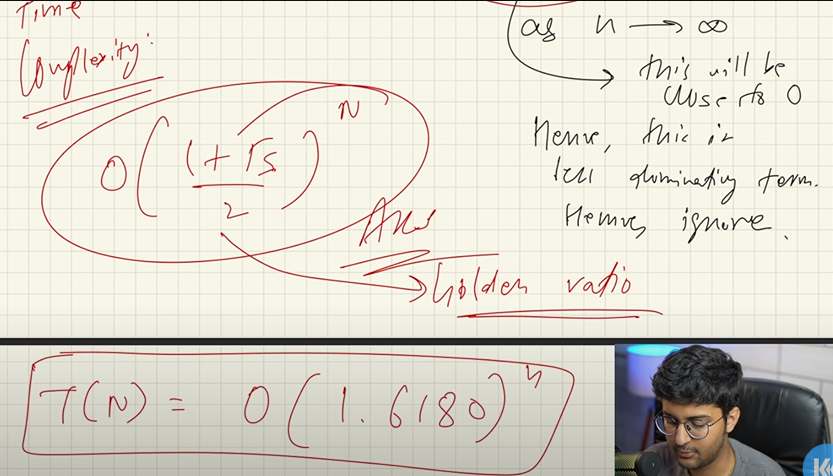 Time
Complexity:
O((1+√5)/2)^N
Ans
Golden ratio
as n → ∞
this will be
close to 0
Hence, this is
less dominating term.
Hence, ignore.
T(N) = O(1.6180)^n
K